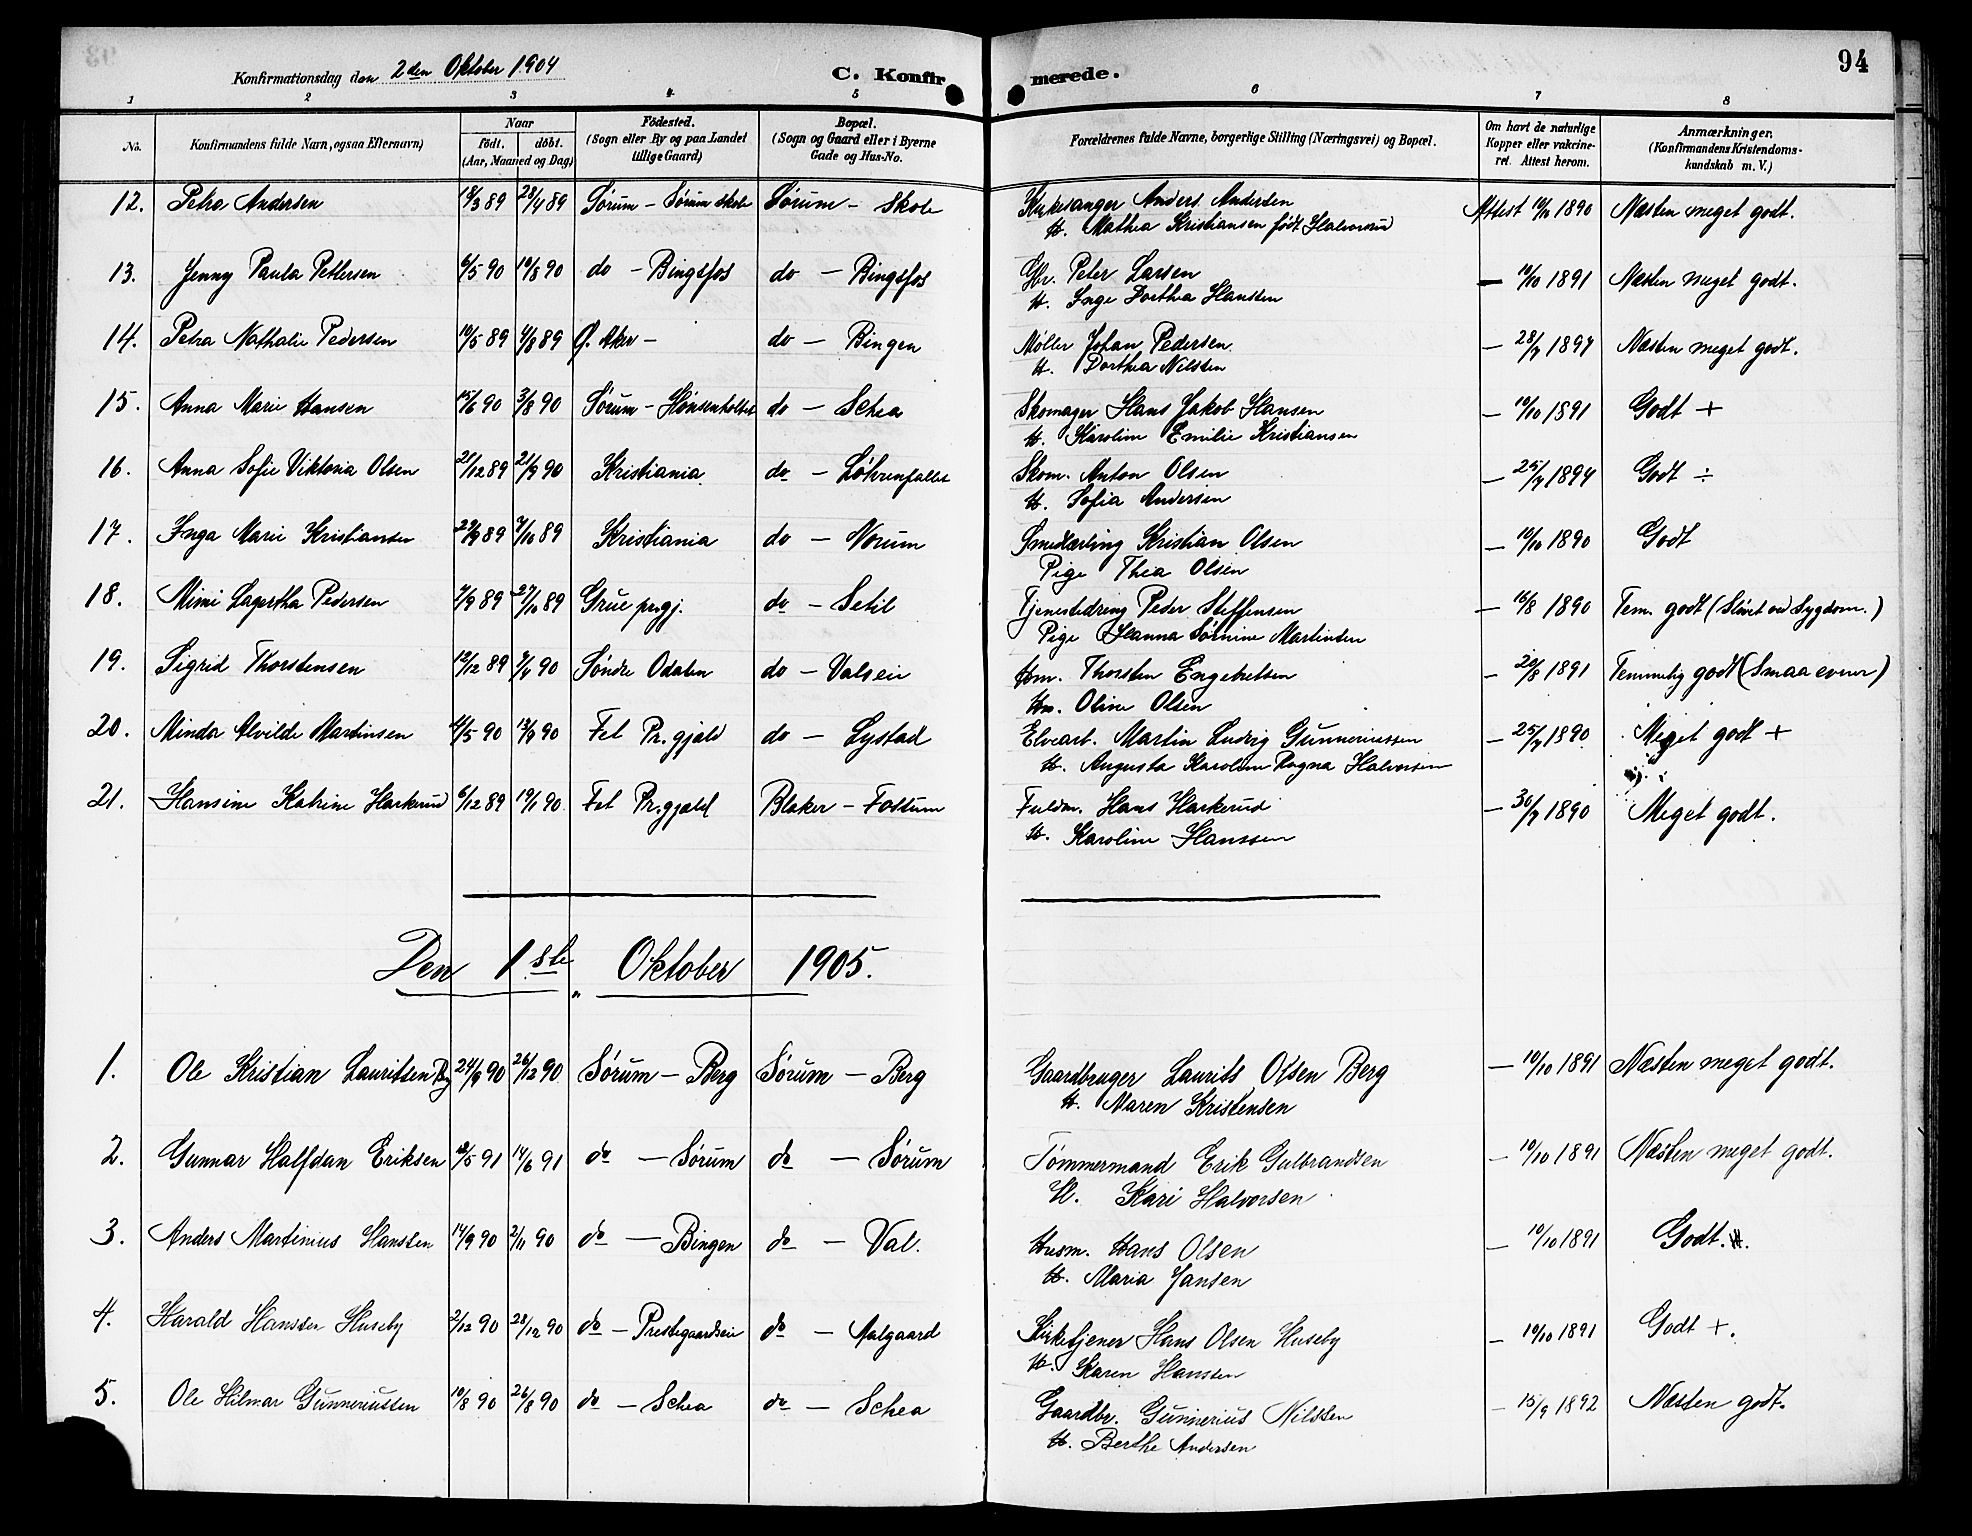 94
Konfirmationsdag den 2den Oktober 1904
C. Konfirmerede.
1 2 3 4 5 6 7 8
No.
Konfirmandens fulde Navn, ogsaa Efternavn)
Naar
födt. döbt.
(Aar, Maaned og Dag)
Födested.
(Sogn eller By og paa Landet
tillige Gaard)
Bopæl.
(Sogn og Gaard eller i Byerne
Gade og Hus-No.
Forældrenes fulde Navne, borgerlige Stilling (Næringsvei) og Bopæl.
Om havt de naturlige
Kopper eller vakcine-
ret. Attest herom.
Anmærkninger.
(Konfirmandens Kristendoms-
kundskab m. V.)
12. Petra Andersen 18/3 89 28/4 89 Sørum - Sørum skole Sørum - Skole Kirkesanger Anders Andersen Attest 10/10 1890 Næsten meget godt.
H. Mathea Kristiansen født Halvorsrud
13. Jenny Paula Pettersen 6/5 90 10/8 90 do - Bingsfos do - Bingsfos Gbr. Peter Larsen - 10/10 1891 Næsten meget godt.
H. Inge Dorthea Hansen
14. Petra Nathalie Pedersen 10/5 89 4/8 89 Ø. Aker - do - Bingen Møller Johan Pedersen - 28/7 1894 Næsten meget godt.
H. Dorthea Nilssen
15. Anna Marie Hansen 15/6 90 3/8 90 Sørum - Hønsenhallet do - Schea Skomager Hans Jakob Hansen - 10/10 1891 Godt +
H. Karoline Emilie Kristiansen
16. Anna Sofie Viktoria Olsen 21/12 89 21/9 90 Kristiania do - Løkrenfallet Skom. Anton Olsen - 25/7 1894 Godt ÷
H. Sofia Andersen
17. Inga Marie Kristiansen 29/9 89 7/10 89 Kristiania do - Norum Smedlærling Kristian Olsen - 10/10 1890 Godt
Pige Thea Olsen
18. Mimi Lagertha Pedersen 7/9 89 27/10 89 Grue prgj. do - Setil Tjenestedreng Peder Steffensen - 16/8 1890 Tem. godt (Sløvet ved Sygdom.)
Pige Hanna Sørnine Martinsen
19. Sigrid Thorstensen 12/12 89 7/4 90 Søndre Odalen do - Valseie Hm. Thorsten Engebretsen - 20/8 1891 Temmelig godt (Smaa evner)
Hu. Oline Olsen
20. Minda Alvilde Martinsen 4/5 90 13/9 90 Fet Pr.gjeld do - Lystad Elvearb. Martin Ludvig Gunneriussen - 25/7 1890 Meget godt +
H. Augusta Karoline Ragna Halvorsen
21. Hansine Katrine Harkerud 6/12 89 19/1 90 Fet Pr.gjeld Blaker - Fossum Fuldm. Hans Harkerud - 30/7 1890 Meget godt.
H. Karoline Hanssen
Den 1ste Oktober 1905.
1. Ole Kristian Lauritsen Bg 24/9 90 26/12 90 Sørum - Berg Sørum - Berg Gaardbruger Laurits Olsen Berg - 10/10 1891 Næsten meget godt.
H. Maren Kristensen
2. Gunnar Halfdan Eriksen 12/5 91 14/6 91 do - Sørum do - Sørum Tømmermand Erik Gulbrandsen - 10/10 1891 Næsten meget godt.
H. Kari Halvorsen
3. Anders Martinius Hanssen 14/9 90 2/11 90 do - Bingen do - Val. Husm. Hans Olsen - 10/10 1891 Godt.
H. Maria Jansen
4. Harald Hanssen Huseby 2/12 90 28/12 90 do - Prestegaardseie do - Aalgaard Kirketjener Hans Olsen Huseby - 10/10 1891 Godt +.
H. Karen Hanssen
5. Ole Hilmar Gunneriussen 10/8 90 26/8 90 do - Schea do - Schea Gaardbr. Gunnerius Nilssen - 15/9 1892 Næsten godt.
H. Berthe Andersen